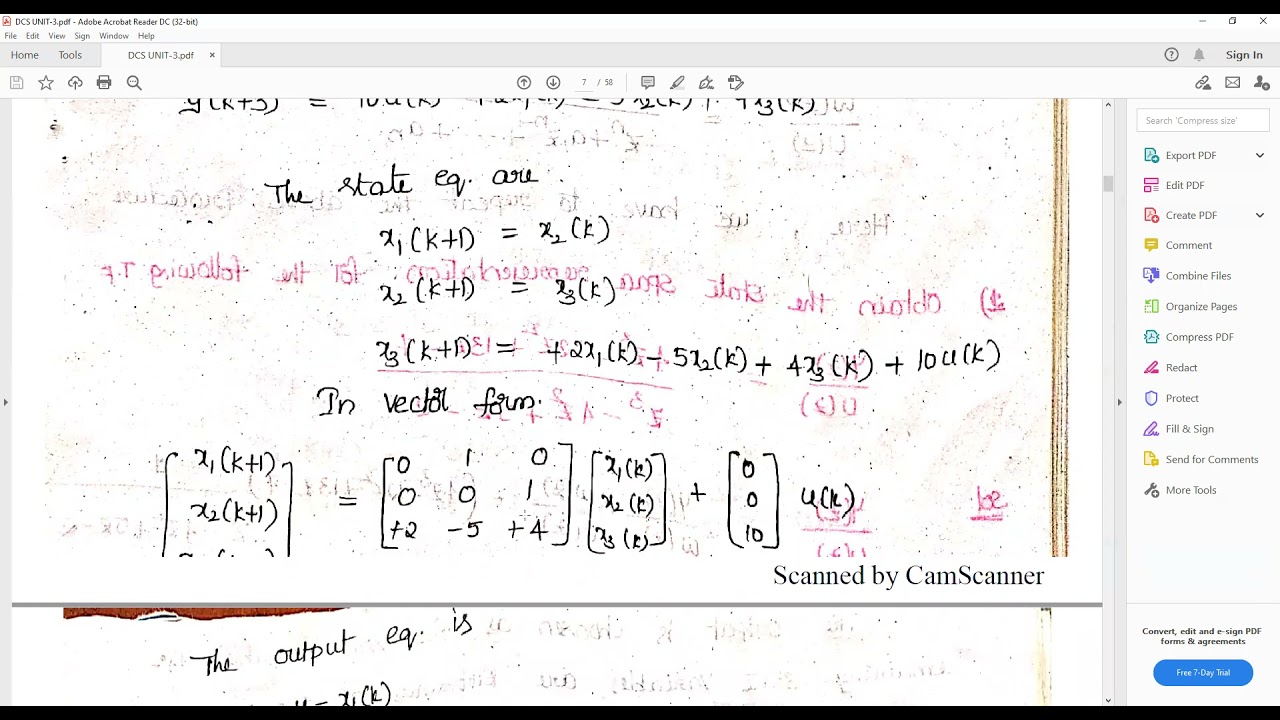 DCS UNIT-3.pdf - Adobe Acrobat Reader DC (32-bit)
File Edit View Sign Window Help
Home Tools DCS UNIT-3.pdf × Sign In
7 / 58
The state eq. are
x₁(k+1) = x₂(k)
x₂(k+1) = x₃(k)
x₃(k+1) = +2x₁(k) - 5x₂(k) + 4x₃(k) + 10u(k)
In vector form.
x₁(k+1) 0 1 0 x₁(k) 0
x₂(k+1) = 0 0 1 x₂(k) + 0 u(k)
+2 -5 +4 x₃(k) 10
Scanned by CamScanner
The output eq. is
y = x₁(k)
Search 'Compress size'
Export PDF
Edit PDF
Create PDF
Comment
Combine Files
Organize Pages
Compress PDF
Redact
Protect
Fill & Sign
Send for Comments
More Tools
Convert, edit and e-sign PDF
forms & agreements
Free 7-Day Trial